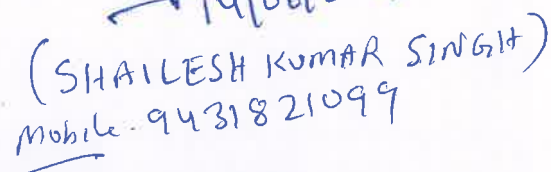 (SHAILESH KUMAR SINGH)
Mobile. 9431821099